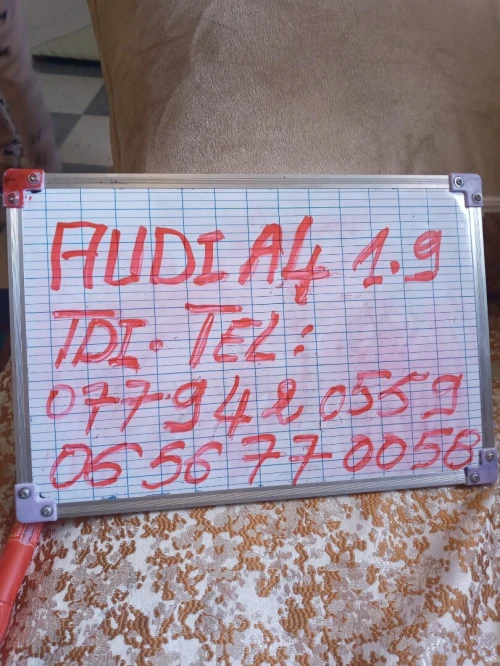 AUDI A4 1.9
TDI. TEL:
077 942 0559
06 56 77 0058